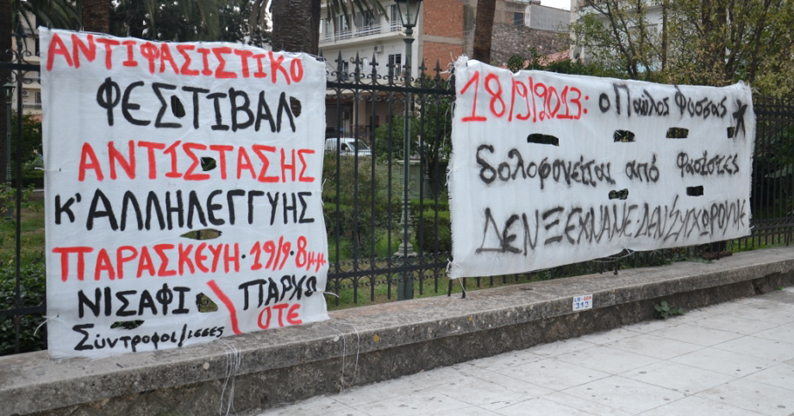 ΑΝΤΙΦΑΣΙΣΤΙΚΟ
ΦΕΣΤΙΒΑΛ
ΑΝΤΊΣΤΑΣΗΣ
Κ' ΑΛΛΗΛΕΓΓΎΗΣ
ΠΑΡΑΣΚΕΥΉ · 19/9 · 8 μ.μ.
ΝΙΣΑΦΙ \ ΠΆΡΚΟ
Σύντροφοι/ισσες ΟΤΕ
18/9/2013: ο Παύλος Φύσσας
δολοφονείται από Φασίστες
ΔΕΝ ΞΕΧΝΑΜΕ · ΔΕΝ ΣΥΓΧΩΡΟΥΜΕ
313